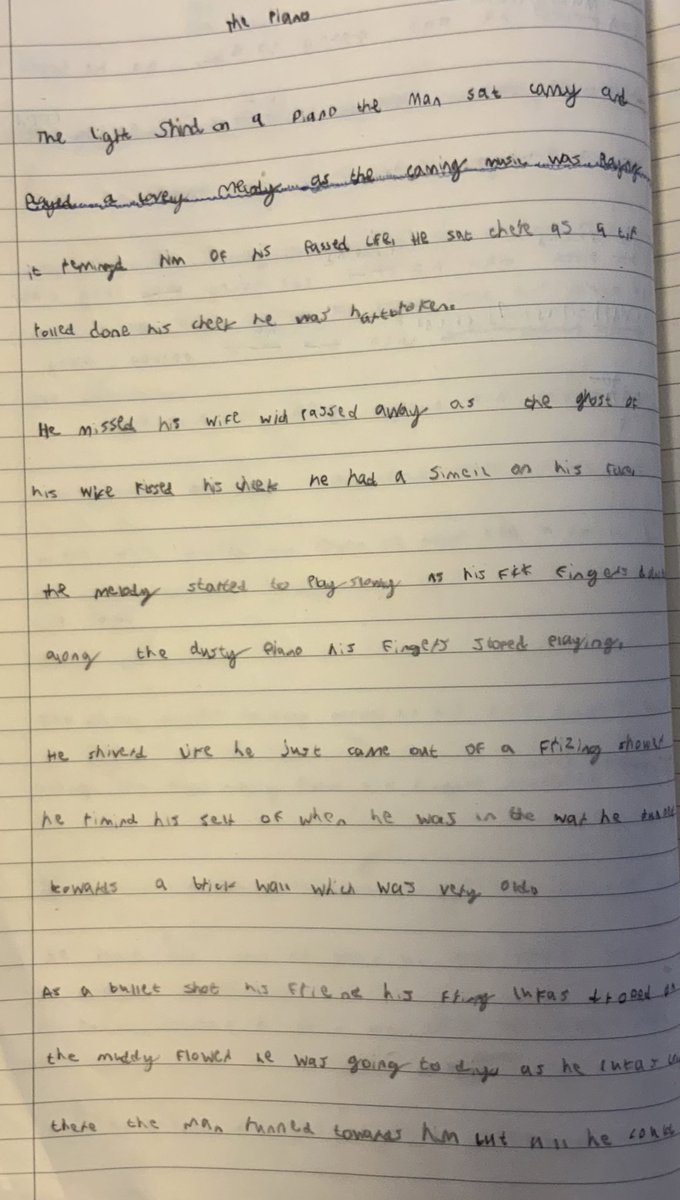 The Piano
The light Shind on a Piano the Man sat camy and
Played a lovey Melody as the caming music was Playing
it remingd him of his Passed Life, He sat there as a tir
rolled done his cheek he was hartbroken.
He missed his wife wich Passed away as the ghost of
his wife kissed his cheek he had a Simeil on his face,
the melody started to Play Slowly as his Fingers
along the dusty Piano his Fingers stoped Playing,
He shiverd like he just came out of a Frizing shower
he rimind his self of when he was in the war he
towards a brick wall which was very old.
As a bullet shot his Friend his Fring lukas droped
the muddy Flower he was going to diye as he lukas
there the Man runned towards him but all he could